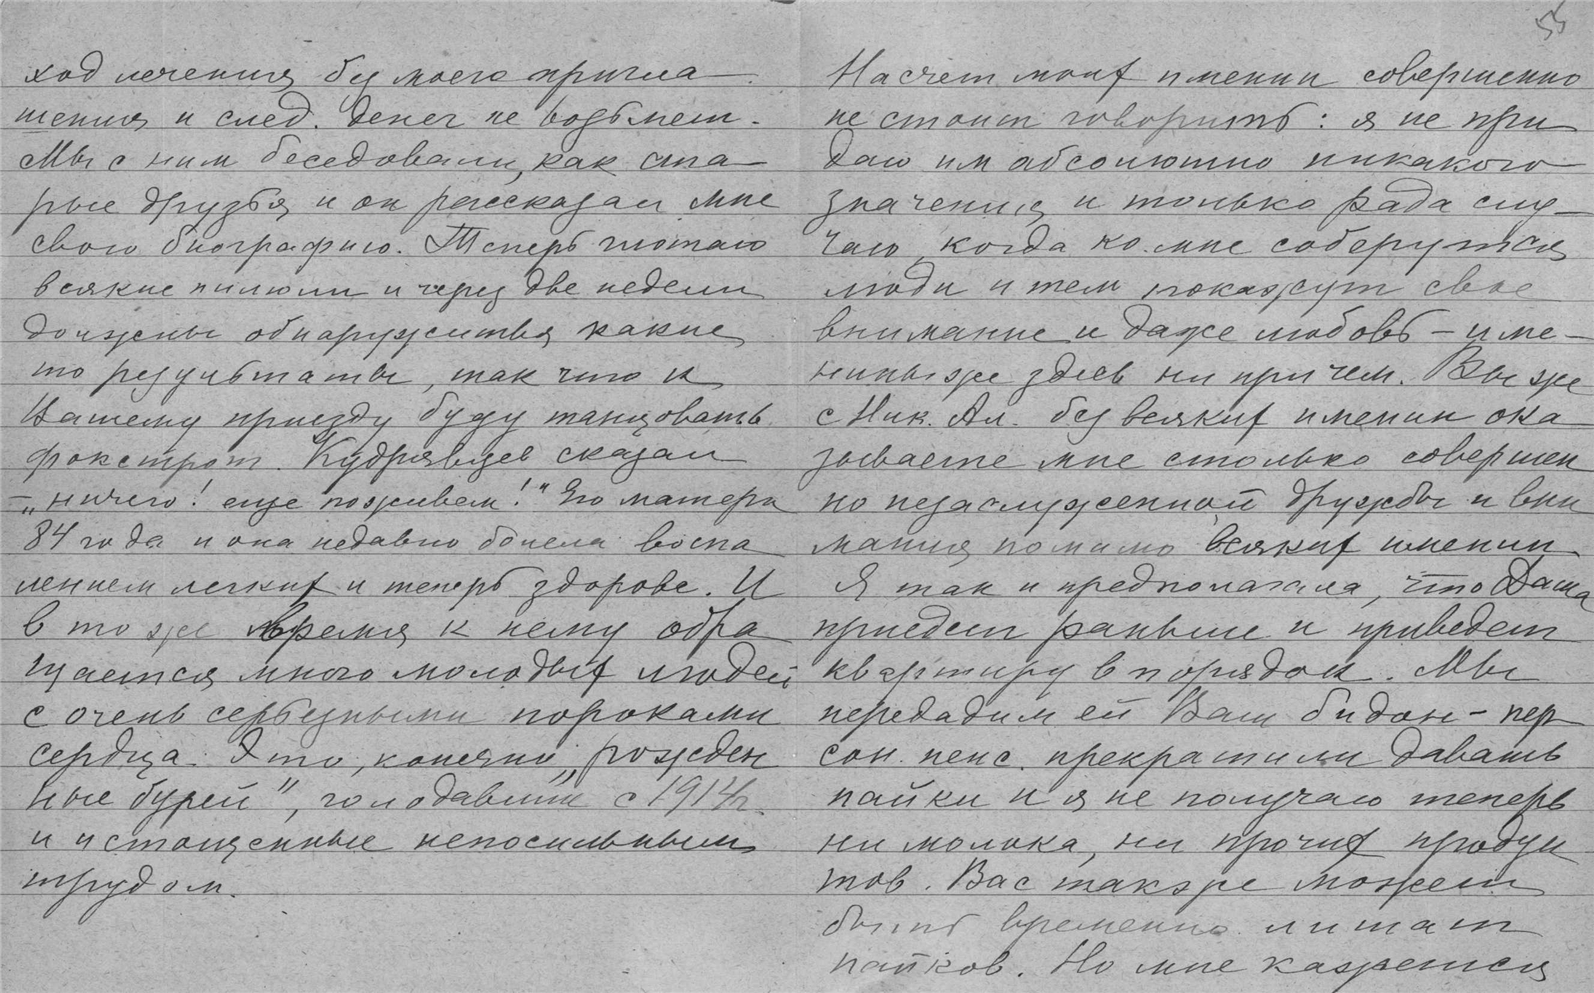 ход лечения без моего пригла-
шения и след. денег не возьмет.
Мы с ним беседовали, как ста-
рые друзья и он рассказал мне
свою биографию. Теперь глотаю
всякие пилюли и через две недели
должны обнаружиться какие
то результаты, так что к
Вашему приезду буду танцовать
фокстрот. Кудрявцев сказал
– „ничего! еще поживем!" Его матери
84 года и она недавно болела воспа
лением легких и теперь здорова. И
в то же время к нему обра
щается много молодых людей
с очень серьезными пороками
сердца. Это, конечно, „рожден
ные бурей", голодавшие с 1914 г.
и истощенные непосильным
трудом.
55
Насчет моих именин совершенно
не стоит говорить: я не при
даю им абсолютно никакого
значения и только рада слу-
чаю, когда ко мне соберутся
люди и тем покажут свое
внимание и даже любовь – име-
нины же здесь ни при чем. Вы же
с Ник. Ал. без всяких именин ока
зываете мне столько совершен
но незаслуженной дружбы и вни
мания помимо всяких именин
Я так и предполагала, что Даша
приедет раньше и приведет
квартиру в порядок. Мы
передадим ей Ваш бидон – пер
сон. пенс. прекратили давать
пайки и я не получаю теперь
ни молока, ни прочих продук
тов. Вас также может
быть временно лишат
пайков. Но мне кажется